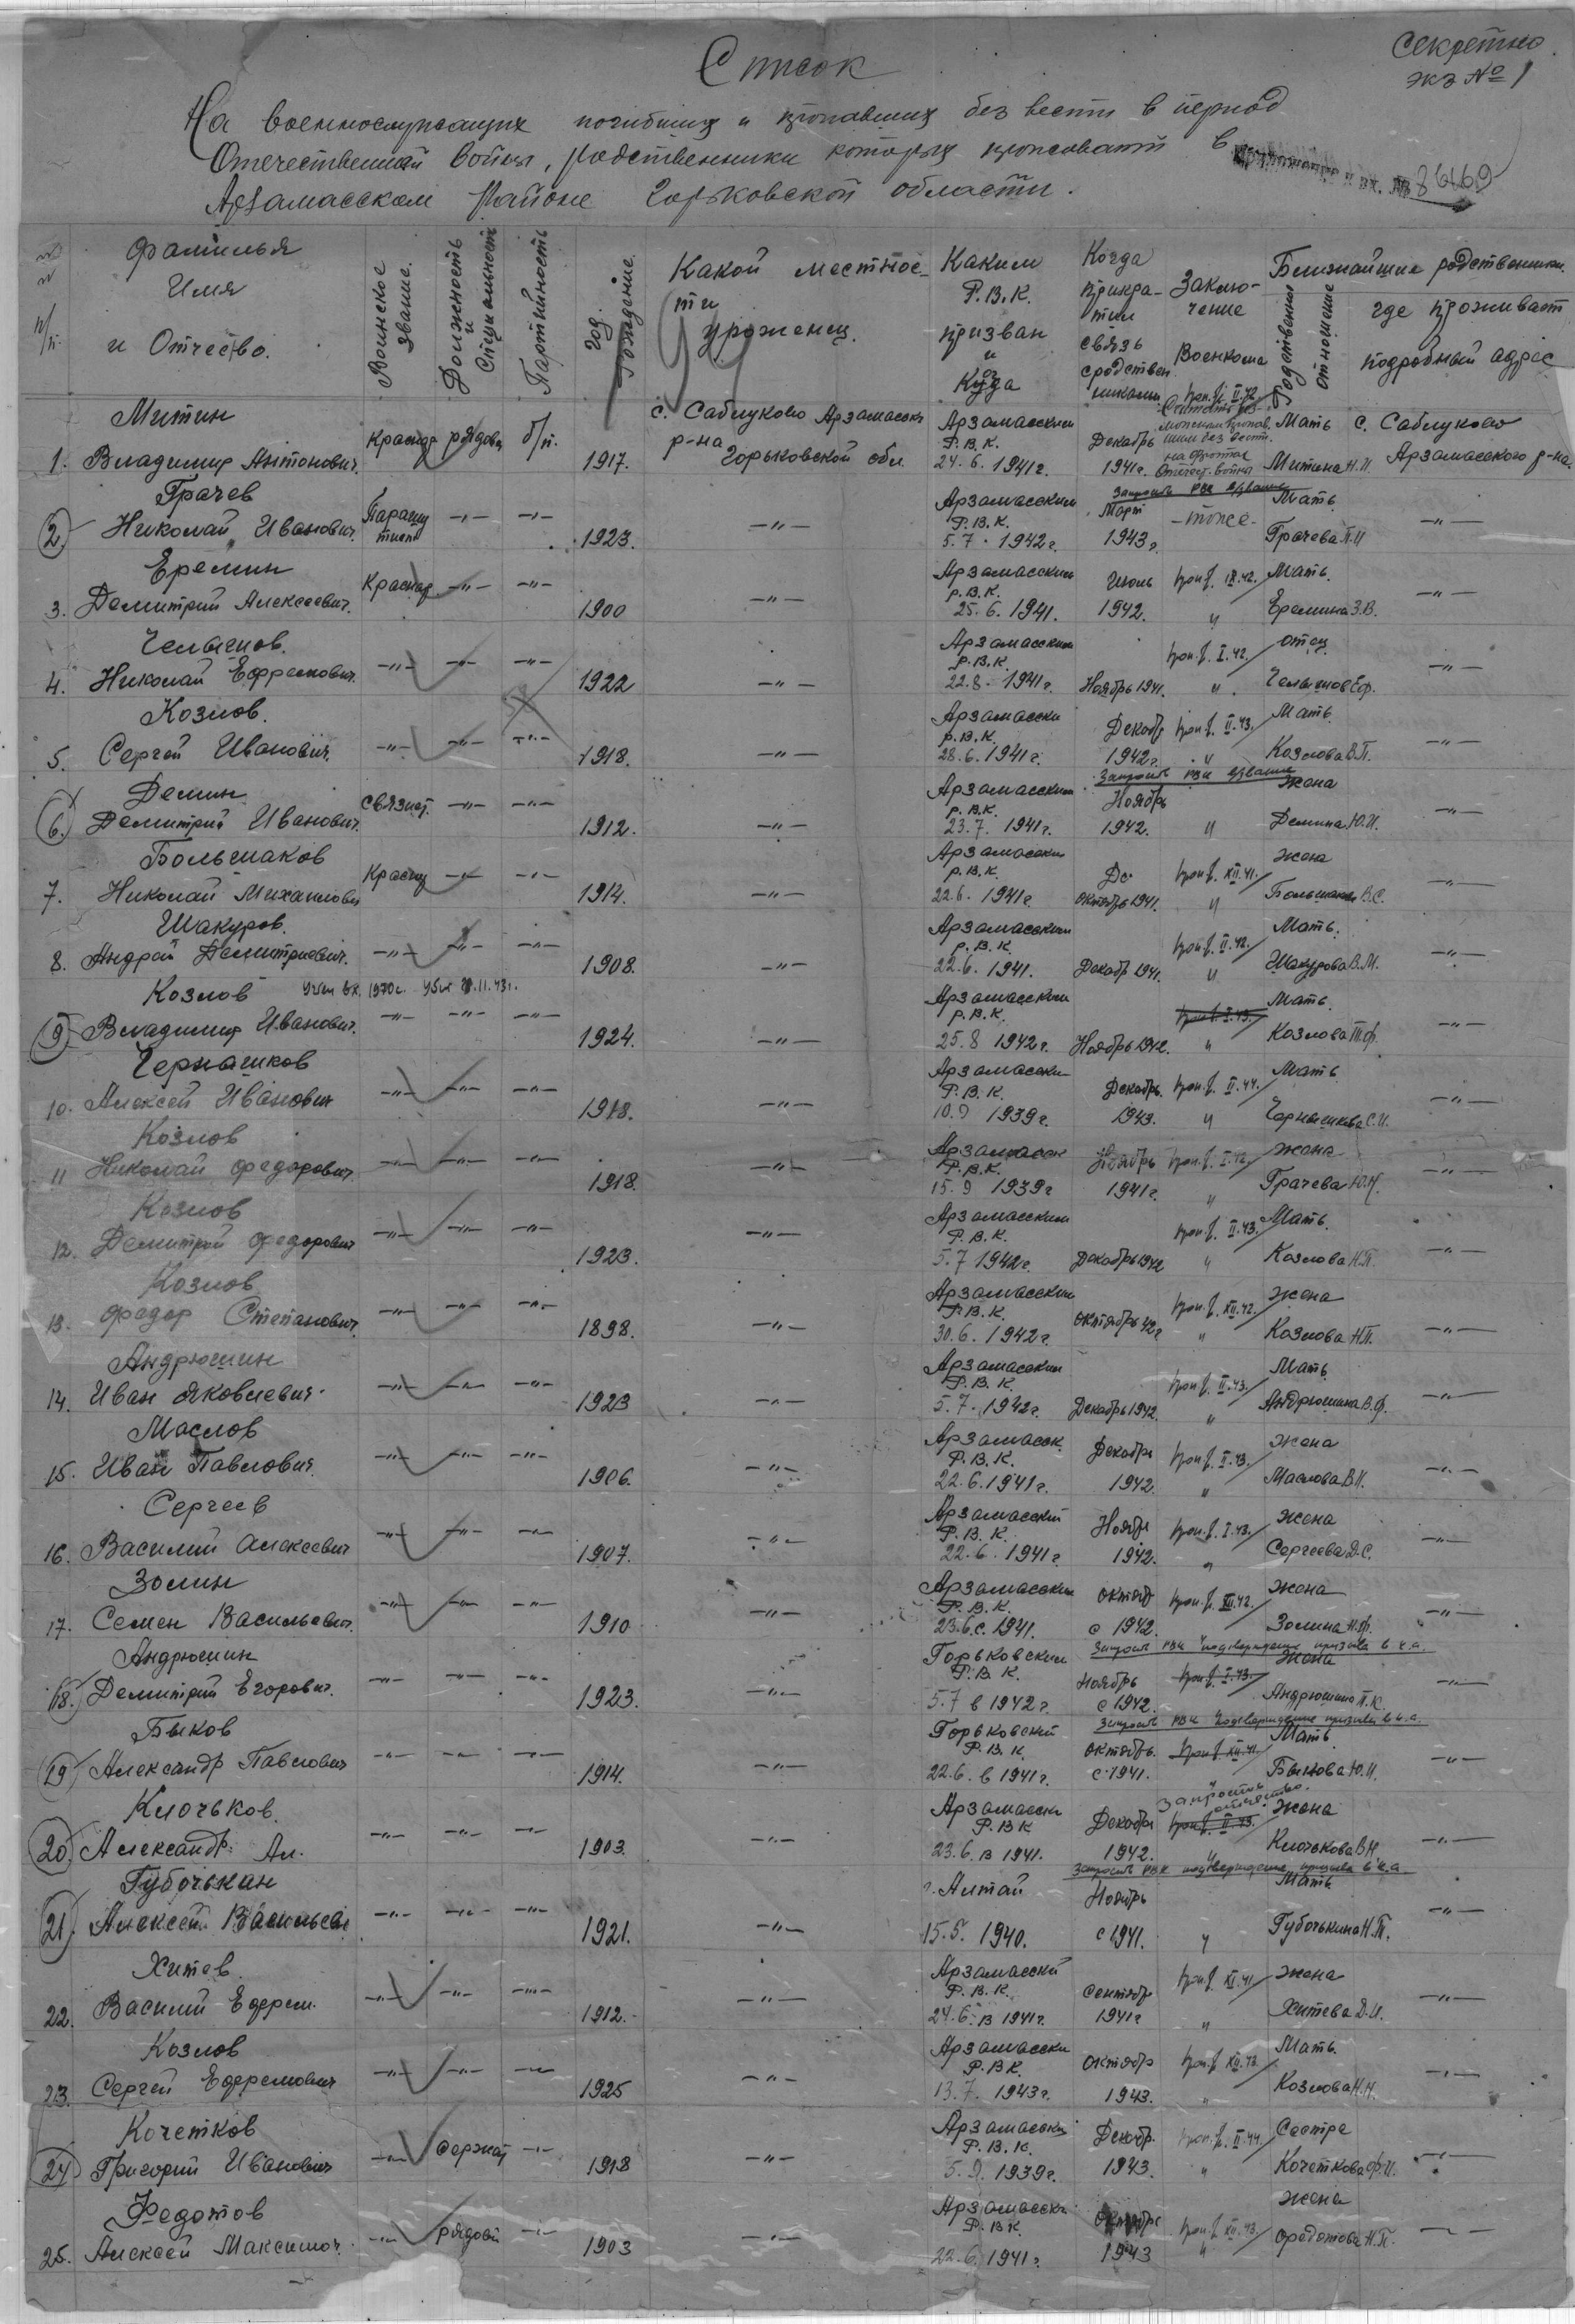 Секретно.
экз № 1
Список
На военнослужащих погибших и пропавших без вести в период
Отечественной войны, родственники которых проживают в
Арзамасском районе Горьковской области.
36169
№ № п/п.
Фамилья Имя и Отчество.
Воинское звание.
Должность и специальность
Партийность
Год рождение.
Какой местности уроженец.
Каким Р.В.К. призван и куда
Когда прикратил связь с родственниками
Заключение Военкома
Ближайшие родственники.
Родственные отношение
где проживает подробный адрес
1. Митин Владимир Антонович. Красноар рядовой б/п. 1917. с. Саблуково Арзамаск р-на Горьковской обл. Арзамасским Р.В.К. 24.6.1941г. Декабрь 1941г. проп. б. II.42. Мать Митина Н.И. с. Саблуково Арзамасского р-на.
Запросить РВК звание
2. Грачев Николай Иванович. Парашутист -"- -"- 1923. -"- Арзамасским Р.В.К. 5.7.1942г. Март 1943г. -тоже- Мать Грачева П.И -"-
3. Еремин Демитрий Алексеевич. Красноар -"- -"- 1900 -"- Арзамасским Р.В.К. 25.6.1941. Июль 1942. проп. б. IX.42. " Мать. Еремина З.В. -"-
4. Челышков. Николай Ефремович. -"- -"- -"- 1922 -"- Арзамасским Р.В.К. 22.8.1941г. Ноябрь 1941. проп. б. I.42. " отец Челышков Еф. -"-
5. Козлов. Сергей Иванович. -"- -"- -"- 1918. -"- Арзамасски Р.В.К. 28.6.1941г. Декабр 1942г. проп. б. II.43. " Мать Козлова В.П. -"-
Запросить РВК звание
6. Демин Демитрий Иванович. Связист. -"- -"- 1912. -"- Арзамасским Р.В.К. 23.7.1941г. Ноябрь 1942. " Жена Демина Ю.И. -"-
7. Большаков Николай Михаилович Красноар -"- -"- 1914. -"- Арзамаским Р.В.К. 22.6.1941г. До октябрь 1941. проп. б. XII.41. " Жена Большакова В.С. -"-
8. Шакуров. Андрей Демитриевич. -"- -"- -"- 1908. -"- Арзамасским Р.В.К. 22.6.1941. Декабр 1941. проп. б. II.42. " Мать. Шакурова В.М. -"-
1970г.
9. Козлов Владимир Иванович. -"- -"- -"- 1924. -"- Арзамасским Р.В.К. 25.8 1942г. Ноябрь 1942. проп. б. I.43. " Мать. Козлова Т.Ф. -"-
10. Чернашков Алексей Иванович -"- -"- -"- 1918. -"- Арзамаски Р.В.К. 10.9 1939г. Декабрь. 1943. проп. б. II.44. " Мать Чернышкова С.И. -"-
11 Козлов Николай Федорович. -"- -"- -"- 1918. -"- Арзамасск Р.В.К. 15.9 1939г Ноябрь 1941г. проп. б. I.42. " Жена Грачева Ю.Н. -"-
12. Козлов Демитрий Федорович -"- -"- -"- 1923. -"- Арзамасским Р.В.К. 5.7 1942г. Декабрь 1942 проп. б. II.43. " Мать. Козлова Н.П. -"-
13. Козлов Федор Степанович. -"- -"- -"- 1898. -"- Арзамасским Р.В.К. 30.6.1942г. октябрь 42г проп. б. XII.42. " Жена Козлова Н.П. -"-
14. Андрюшин Иван Яковлевич. -"- -"- -"- 1923 -"- Арзамаским Р.В.К. 5.7.1942г. Декабрь 1942. проп. б. II.43. " Мать Андрюшина В.Ф. -"-
15. Маслов Иван Павлович. -"- -"- -"- 1906. -"- Арзамаск. Р.В.К. 22.6.1941г. Декабрь 1942. проп. б. II.43. " Жена Маслова В.И. -"-
16. Сергеев Василий Алексеевич -"- -"- -"- 1907. -"- Арзамасский Р.В.К. 22.6.1941г. Ноябр 1942. проп. б. I.43. " Жена Сергеева Д.С. -"-
17. Золин Семен Васильевич. -"- -"- -"- 1910 -"- Арзамаским Р.В.К. 23.6.с.1941. октяб с 1942. проп. б. XII.42. Жена Золина Н.Ф. -"-
Запросить РВК подтверждение призыва в к.а.
18. Андрюшин Демитрий Егорович. -"- -"- -"- 1923. -"- Горьковским Р.В.К. 5.7 в 1942г. Ноябрь с 1942. проп. б. I.43. Жена Андрюшина П.К. -"-
Запросить РВК подтверждение призыва в к.а.
19 Быков Александр Павлович -"- -"- -"- 1914. -"- Горьковский Р.В.К. 22.6. в 1941г. октябрь. с 1941. проп. б. XII.41. " Мать Быкова Ю.И. -"-
Запросить отчество.
20. Клочьков. Александр Ал. -"- -"- -"- 1903. -"- Арзамасск Р.В.К 23.6. в 1941. Декабрь 1942. проп. б. II.43. " Жена Клочькова В.Н -"-
Запросить РВК подтверждение призыва в к.а
21. Губочькин Алексей Васильеви -"- -"- -"- 1921. -"- г. Алтай 15.5. 1940. Ноябрь с 1941. " Мать Губочькина Н.П. -"-
22. Хитев. Василий Ефрем. -"- -"- -"- 1912. -"- Арзамасский Р.В.К. 24.6. в 1941г. Сентябр 1941г проп. б. XI.41 " Жена Хитева Д.И. -"-
23. Козлов Сергей Ефремович -"- -"- -"- 1925 -"- Арзамасски Р.В.К. 13.7. 1943г. октябр 1943. проп. б. XII.43. " Мать Козлова Н.Н. -"-
24 Кочетков Григорий Иванович -"- сержат -"- 1918 -"- Арзамаски Р.В.К. 5.9. 1939г. Декабр. 1943. проп. б. II.44. " Сестра Кочеткова Ф.И. -"-
25. Федотов Алексей Максимов. -"- рядовой -"- 1903 -"- Арзамасски Р.В.К. 22.6.1941г. октябрь 1943 проп. б. XII.43. " Жена Федотова Н.П. -"-